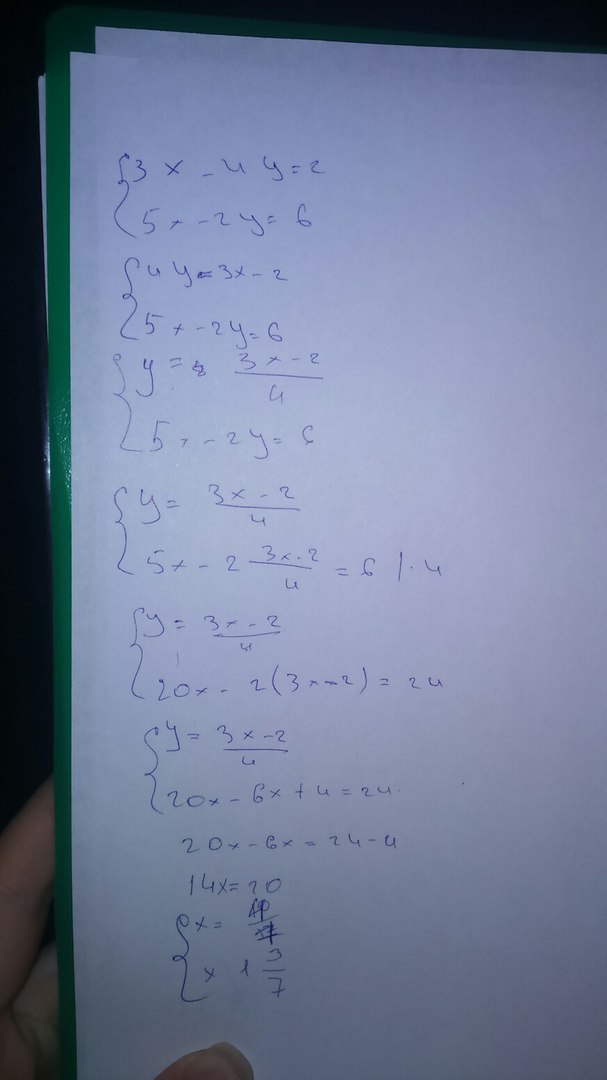 {3x - 4y = 2
{5x - 2y = 6
{4y = 3x - 2
{5x - 2y = 6
{y = (3x - 2)/4
{5x - 2y = 6
{y = (3x - 2)/4
{5x - 2 (3x - 2)/4 = 6 / · 4
{y = (3x - 2)/4
{20x - 2(3x - 2) = 24
{y = (3x - 2)/4
{20x - 6x + 4 = 24
20x - 6x = 24 - 4
14x = 20
{x =
{x 1 3/7